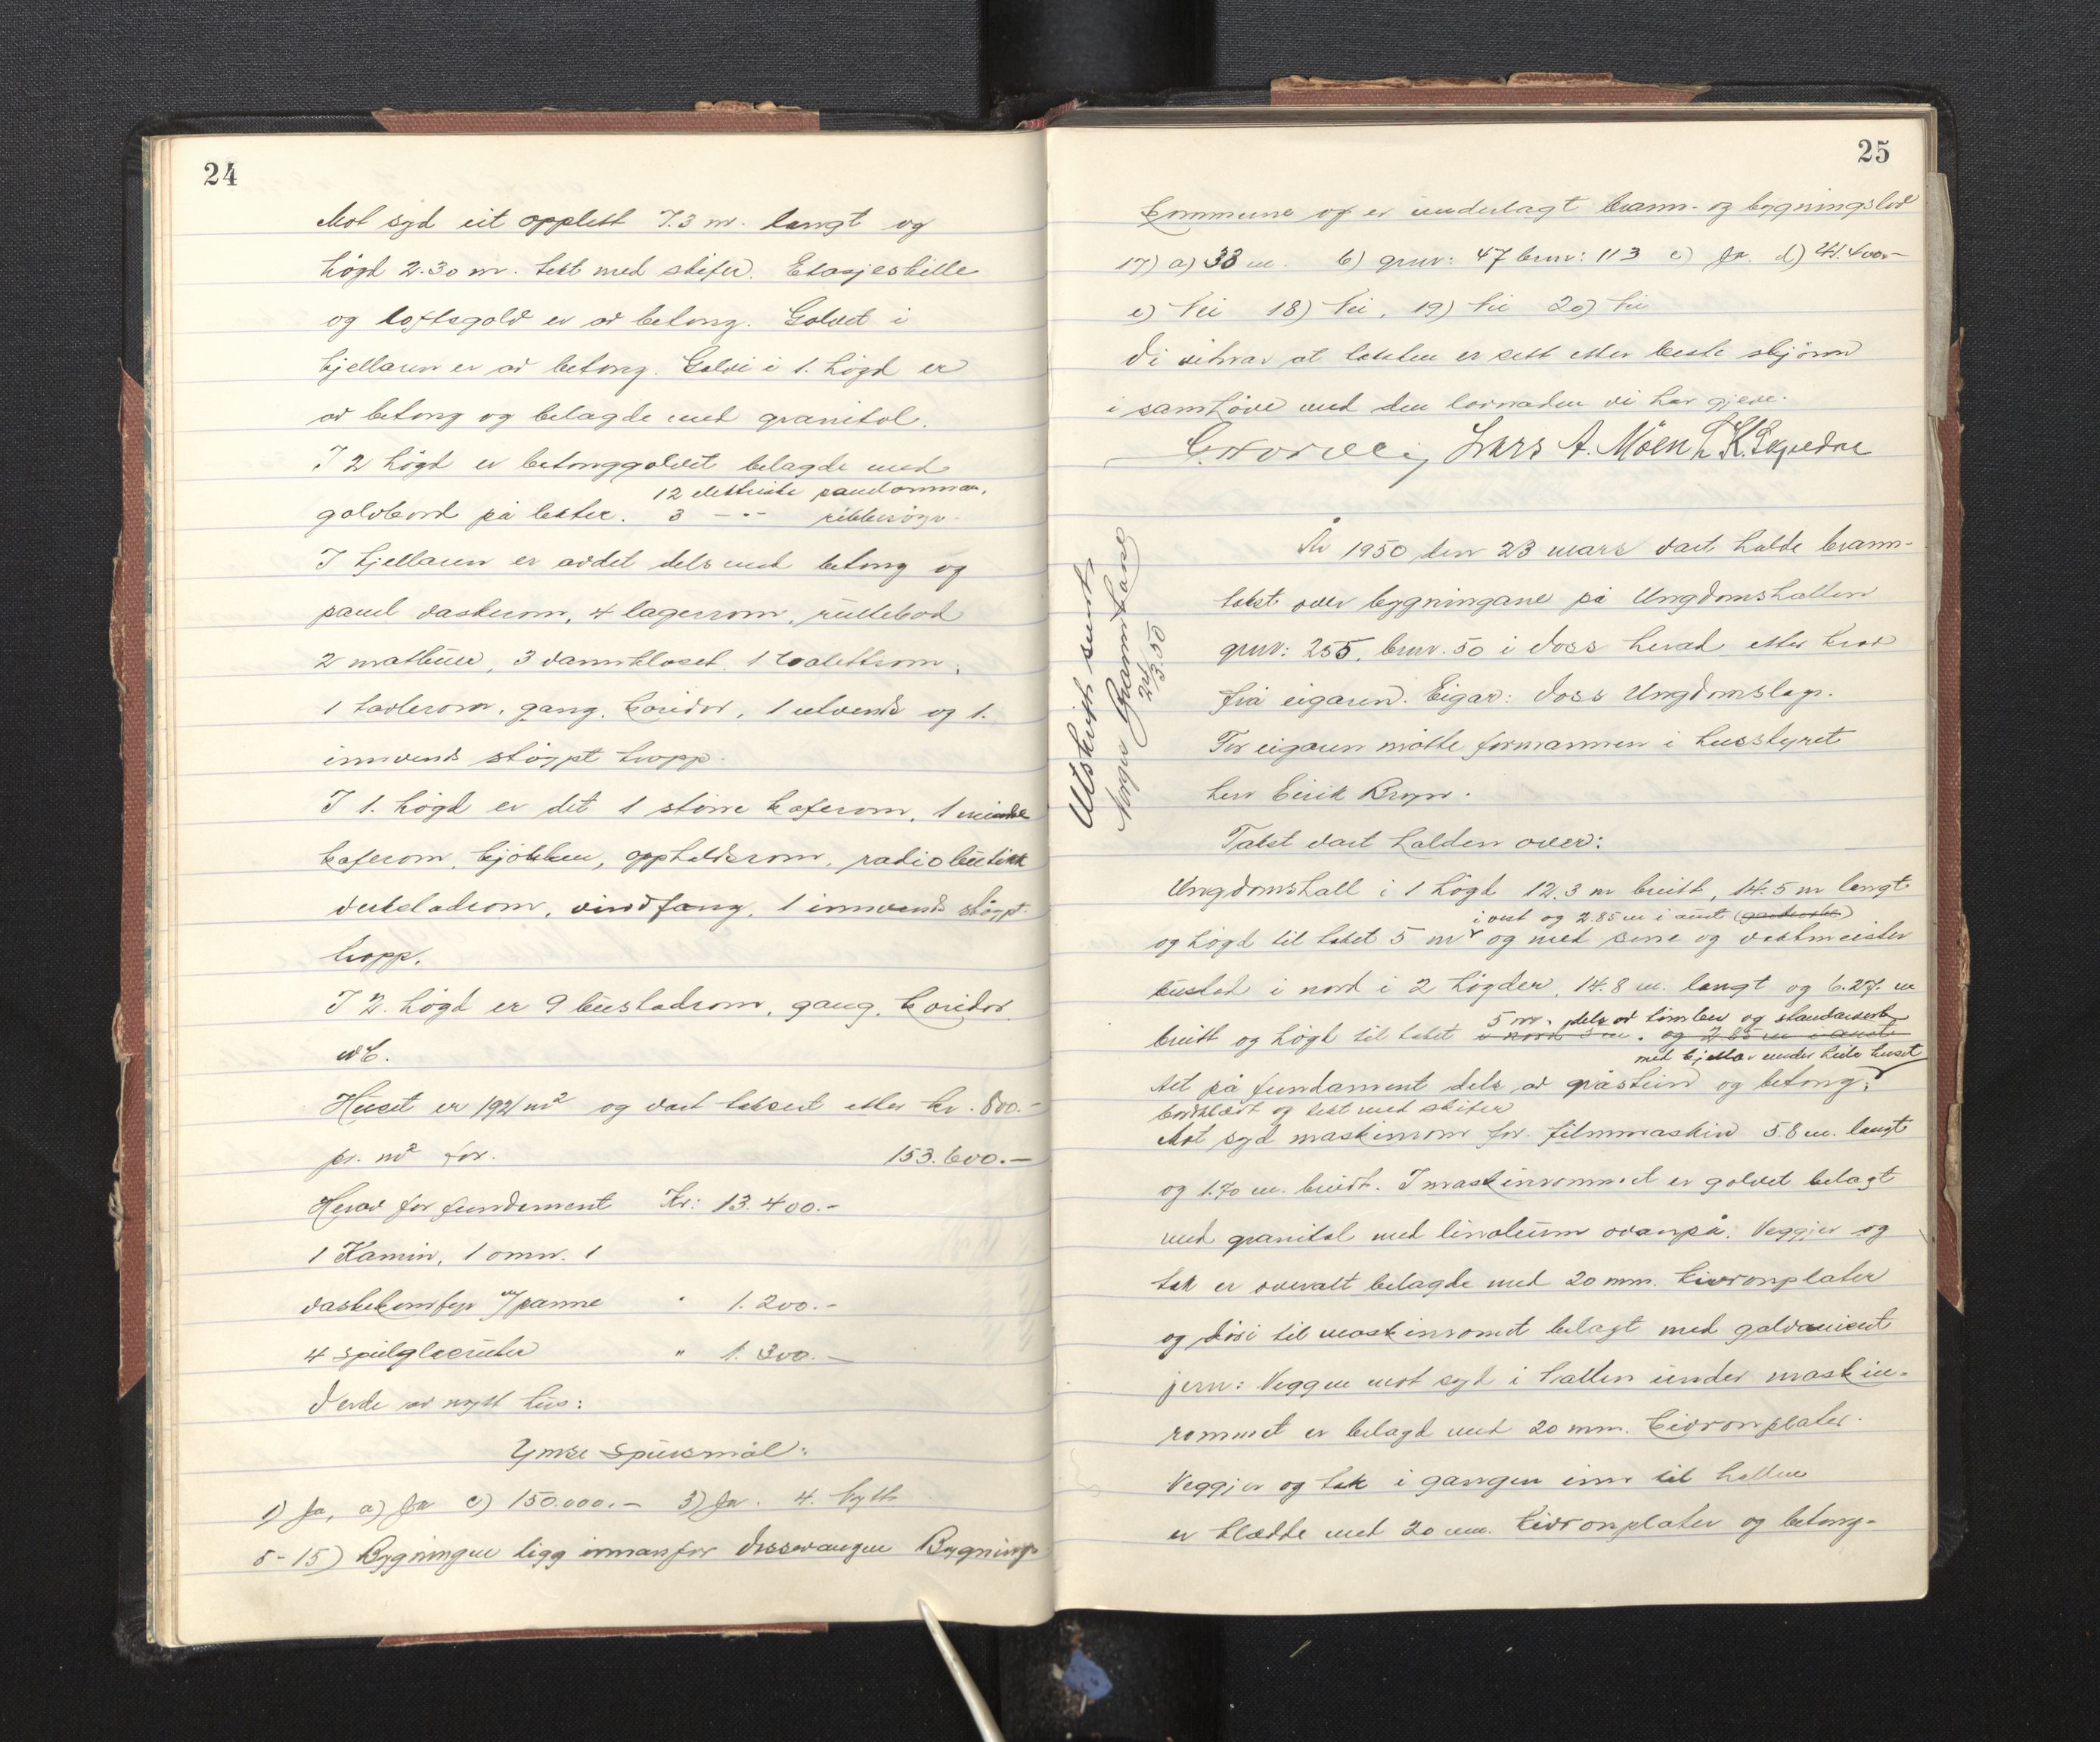 24
Mot syd eit opplett 7.3 m. langt og
högd 2.30 m. tekt med skifer. Etasjeskille
og loftsgolv er av betong. Golvet i
kjellaren er av betong. Golvi i 1. högd er
av betong og belagde med granitol.
I 2 högd er betonggolvet belagde med
12 elektriske panelomnar,
golvbord på lekter. 3 -"- ribberöyr.
I kjellaren er avdet dels med betong og
panel vaskerom, 4 lagerrom, rullebod
2 matbuer, 3 vannkloset. 1 toalettrom,
1 tavlerom, gang, koridor, 1 utvends og 1.
innvends stöypt tropp.
I 1. högd er det 1 större kaferom, 1 mindre
kaferom, kjökken, oppholdsrom, radiobutikk
verkstadrom, vindfang, 1 innvends stöypt
tropp.
I 2. högd er 9 bustadrom, gang, koridor
WC.
Huset er 192 m² og vart taksert etter kr. 800.-
pr. m² for. 153.600.-
Herav for fundament Kr: 13.400.-
1 Kamin, 1 omn. 1
vaskekomfyr m/panne " 1.200.-
4 speilglasruter " 1.300.-
Verde av nytt hus:
Ymse Spursmål:
1) Ja, a) Ja c) 150.000.- 3) Ja. 4. Nytt
5-15) Bygningen ligg innanfor Vossevangen Bygnings-
25
kommune og er underlagt brann- og bygningslov
17) a) 33 m. b) gnr: 47 bnr: 113 c) Ja. d) 41.400.-
e) Nei 18) Nei, 19) Nei 20) Nei
Vi vitnar at taksten er sett etter beste skjönn
i samhöve med den lovnaden vi har gjeve.
Lars A. Möen
År 1950 den 23 mars vart halde brann-
takst over bygningane på Ungdomshallen
gnr: 255, bnr. 50 i Voss herad etter krav
frå eigaren. Eigar: Voss Ungdomslag.
For eigaren mötte formannen i husstyret
herr Eirik Bryn.
Takst vart halden over:
Ungdomshall i 1 högd 12.3 m breitt, 14.5 m langt
i vest og 2.85 m i aust
og högd til taket 5 m og med scene og vaktmeister
bustad i nord i 2 högder, 14.8 m. langt og 6.27. m
5 m. dels av timber og standarverk
breitt og högd til taket i nord 5 m. og 2.85 m i aust
med kjellar under heile huset
Alt på fundament dels av gråstein og betong,
bordklædt og tekt med skifer
Mot syd maskinrom for filmmaskin 5.8 m. langt
og 1.70 m. breidt. I maskinrommet er golvet belagt
med granitol med linoleum ovanpå. Veggjer og
tak er overalt belagde med 20 mm. tivronplater
og döri til maskinromet belagt med galvanisert
jern: Veggen mot syd i hallen under maskin-
rommet er belagd med 20 mm. tivronplater.
Veggjer og tak i gangen inn til hallen
er klædde med 20 mm. tivronplater og betong-
Utskrift sendt
Norges Brannkasse
24/3.50